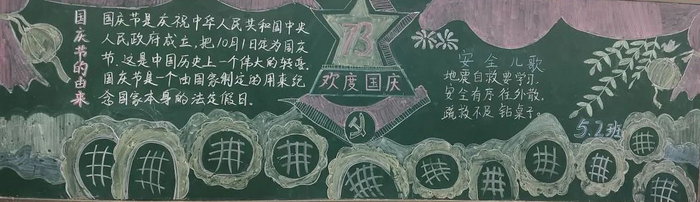 国庆节的由来
国庆节是庆祝中华人民共和国中央
人民政府成立,把10月1日定为国庆
节,这是中国历史上一个伟大的转变。
国庆节是一个由国家制定的用来纪
念国家本身的法定假日。
73
欢度国庆
安全儿歌
地震自救要学习,
安全有序往外散,
疏散不及钻桌子。
5.2班